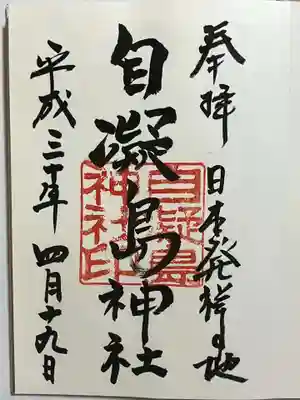 奉拝 日本発祥の地
自凝島神社
自凝島
神社印
平成三十年四月十九日